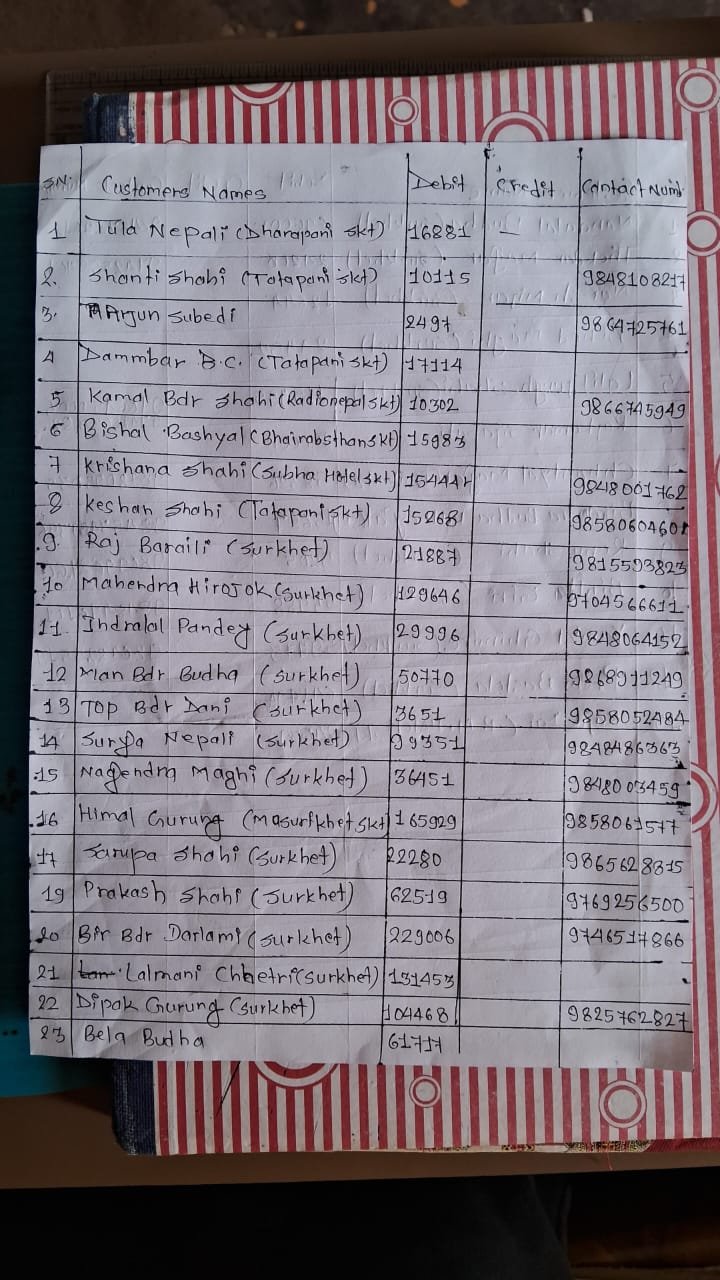 S.N. Customers Names Debit Credit Contact Numb
1 Tula Nepali (Dharapani skt) 16881
2. Shanti Shahi (Tatapani skt) 10115 9848108217
3. Arjun Subedi 2497 9864725761
4 Dammbar B.C. (Tatapani skt) 17114
5 Kamal Bdr Shahi (Radionepal skt) 10302 9866745949
6 Bishal Bashyal (Bhairabsthan skt) 15983
7 Krishana Shahi (Subha Hotel skt) 15444 9848001762
8 Keshan Shahi (Tatapani skt) 15268 9858060460
9. Raj Baraili (Surkhet) 21887 9815593823
10 Mahendra Hirojok (Surkhet) 129646 9704566611
11. Indralal Pandey (Surkhet) 29996 9848064152
12 Man Bdr Budha (Surkhet) 50770 9868911249
13 Top Bdr Dani (Surkhet) 3651 9858052484
14 Surya Nepali (Surkhet) 99351 9848486363
15 Nagendra Maghi (Surkhet) 36451 9848003459
16 Himal Gurung (Masurikhet, Skt) 165929 9858061577
17 Sarupa Shahi (Surkhet) 22280 9865628815
19 Prakash Shahi (Surkhet) 62519 9769256500
20 Bir Bdr Darlami (Surkhet) 229006 9746517866
21 Lalmani Chhetri (Surkhet) 131453
22 Dipak Gurung (Surkhet) 104468 9825762827
23 Bela Budha 61717